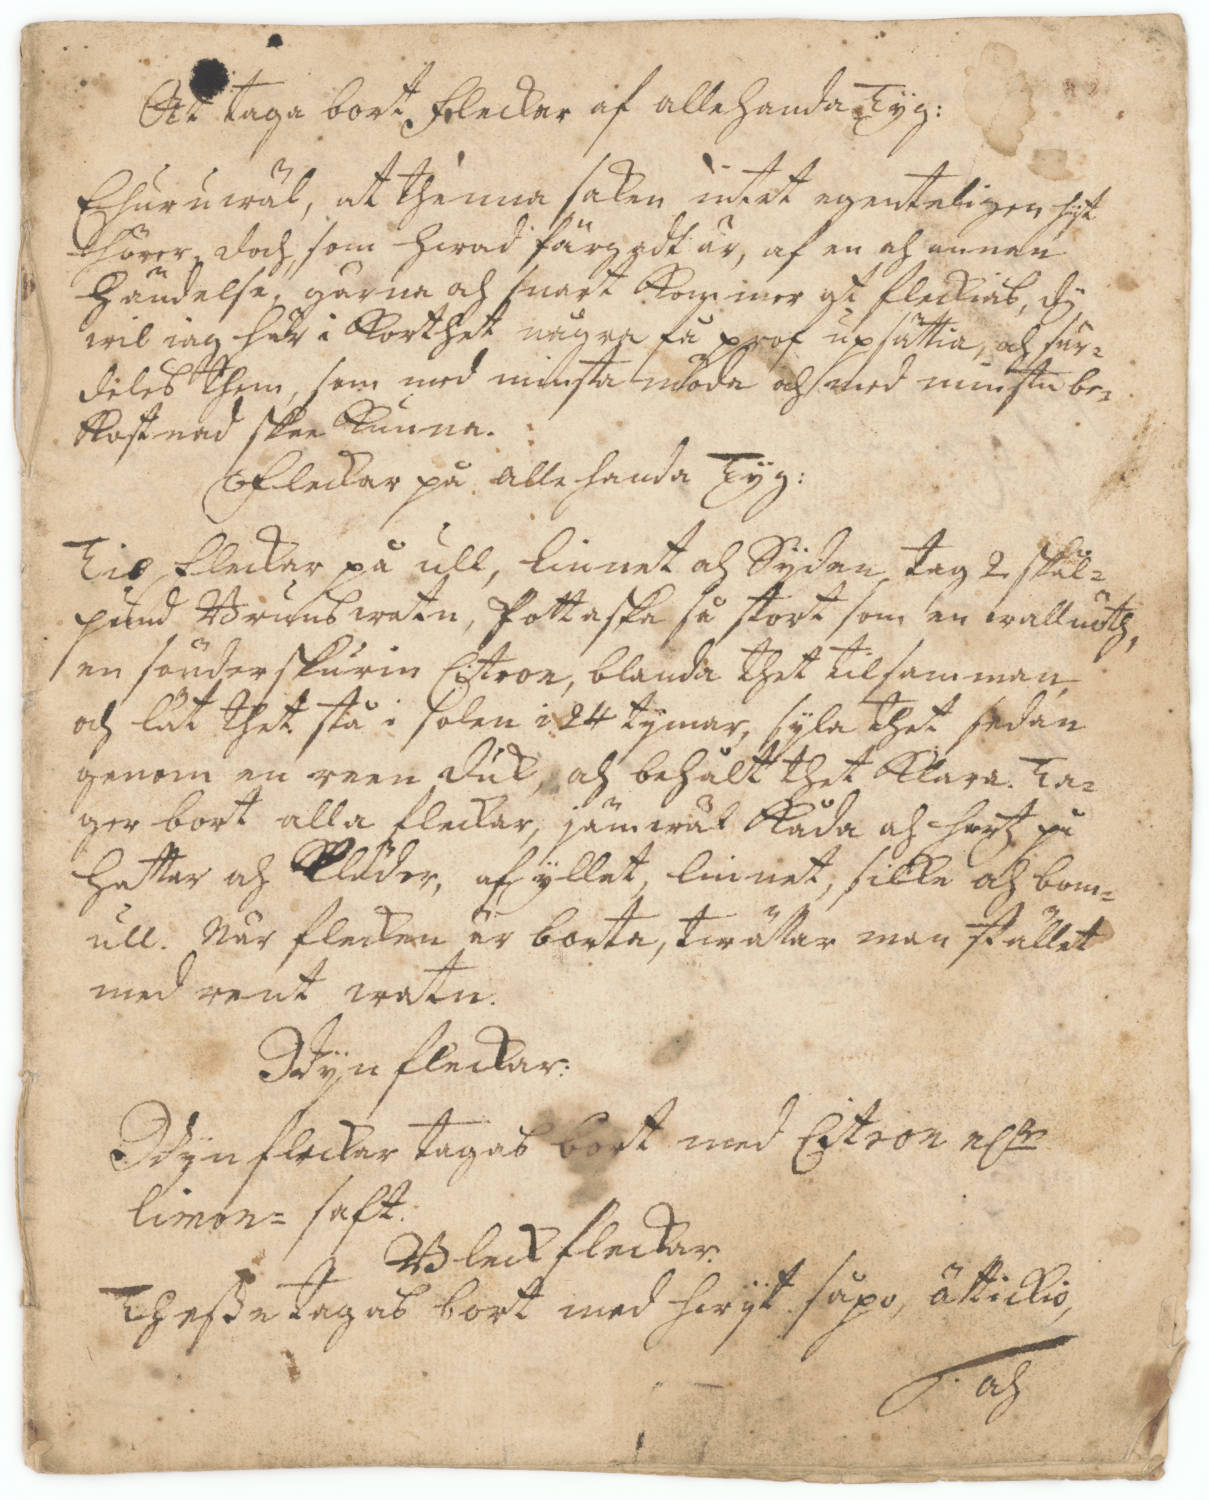 At taga bort Fleckar af allehanda Tÿg:
Ehuruwäl, at thenna saken intet egenteligen hijt
hörer, doch, som hwad färgadt är, af en och annan
händelse, gärna och snart kommer at fleckias, dÿ
wil iag här i korthet några få prof upsättia, och sär=
deles them, som med minsta möda och med minsta be=
kostnad skee kunna.
Fleckar på allehanda Tÿg:
Til Fleckar på ull, linnet och Sÿden, tag 2 skål=
pund Brunswatn, Pottaska så stort som en wallnöth,
en sönderskurin Citron, blanda thet tilsamman,
och låt thet stå i solen i 24 tÿmar, sÿla thet sedan
genom en reen duk, och behålt thet klara. Ta=
ger bort alla fleckar, jämwäl kåda och hartz på
hattar och kläder, af ÿllet, linnet, silke och bom=
ull. När flecken är borta, twättar man stället
med rent watn.
Wÿn fleckar:
Wÿn fleckar tagas bort med Citron
limon= saft.
Bleck fleckar.
Thesse tagas bort med hwÿt såpo, ättickio,
och